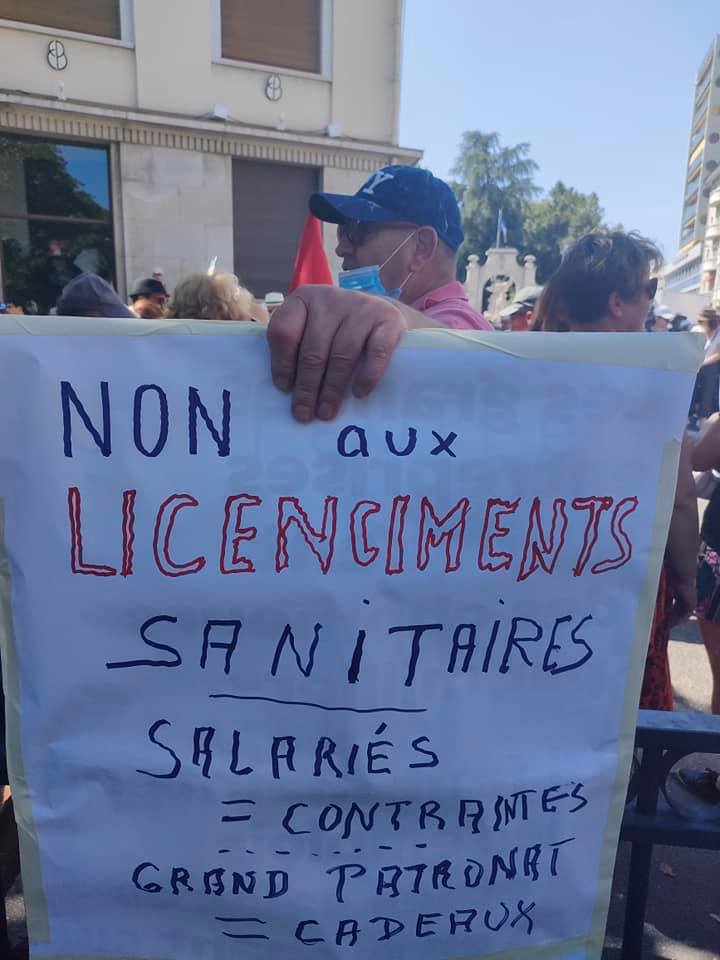 NON aux
LICENCIMENTS
SANiTAiRES
SALARIÉS
= CONTRAINTES
GRAND PATRONAT
= CADEAUX